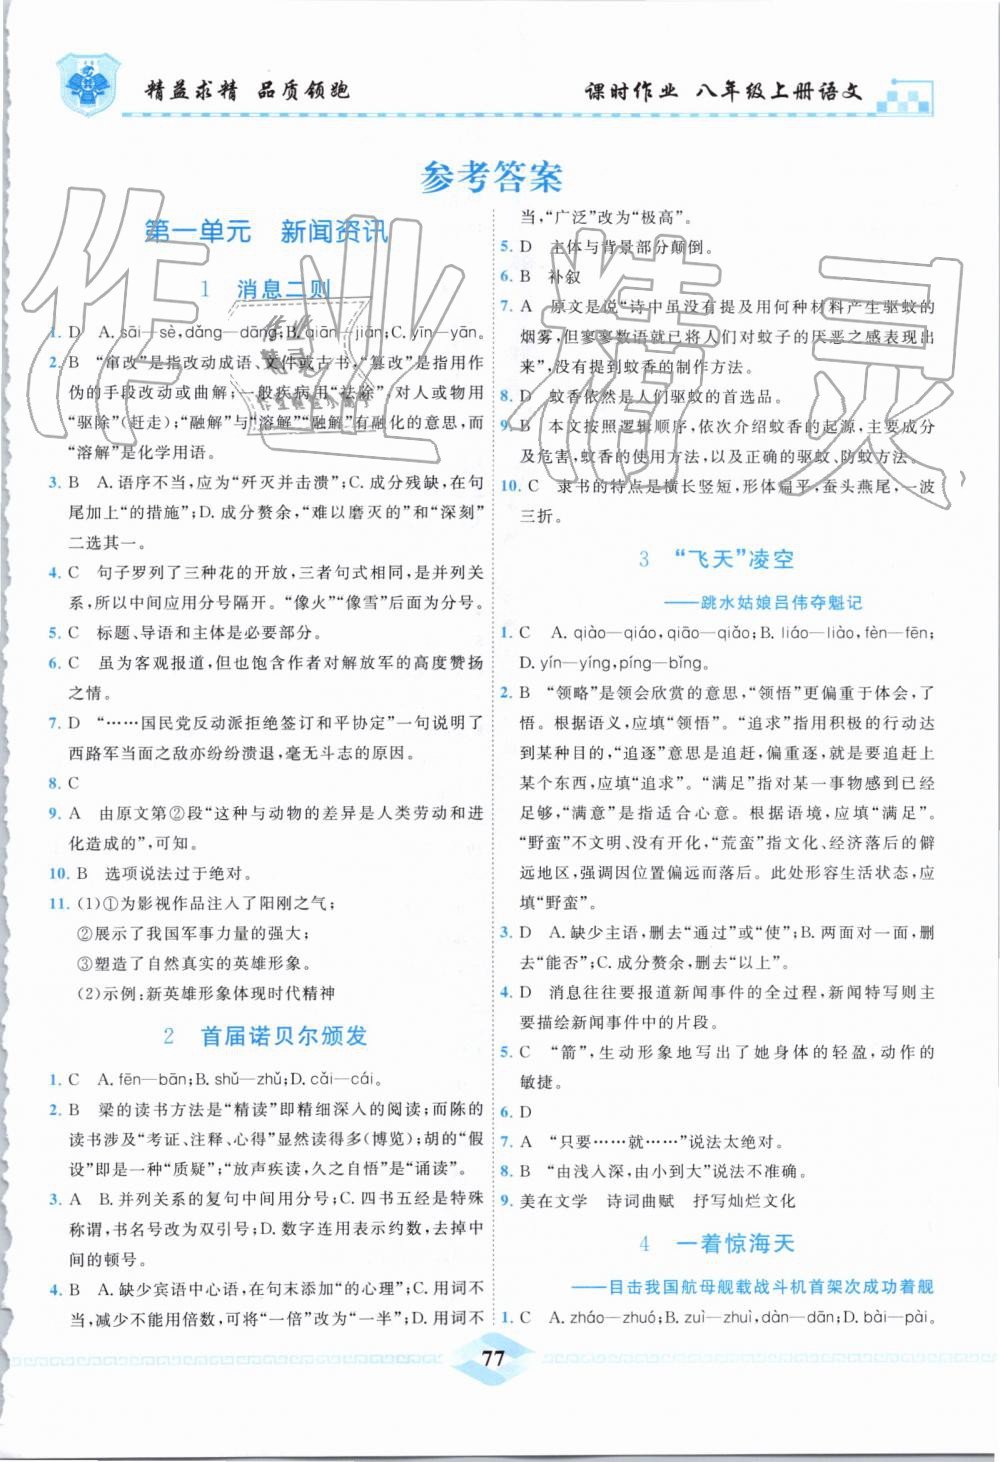 精益求精 品质领跑
课时作业 八年级上册语文
参考答案
第一单元 新闻资讯
1 消息二则
1. D A. sāi—sè,dǎng—dāng;B. qiān—jiān;C. yīn—yān。
2. B “窜改”是指改动成语、文件或古书,“篡改”是指用作
伪的手段改动或曲解;一般疾病用“祛除”,对人或物用
“驱除”(赶走);“融解”与“溶解”“融解”有融化的意思,而
“溶解”是化学用语。
3. B A. 语序不当,应为“歼灭并击溃”;C. 成分残缺,在句
尾加上“的措施”;D. 成分赘余,“难以磨灭的”和“深刻”
二选其一。
4. C 句子罗列了三种花的开放,三者句式相同,是并列关
系,所以中间应用分号隔开。“像火”“像雪”后应用分号。
5. C 标题、导语和主体是必要部分。
6. C 虽为客观报道,但也饱含作者对解放军的高度赞扬
之情。
7. D “……国民党反动派拒绝签订和平协定”一句说明了
西路军当面之敌亦纷纷溃退,毫无斗志的原因。
8. C
9. A 由原文第②段“这种与动物的差异是人类劳动和进
化造成的”,可知。
10. B 选项说法过于绝对。
11. (1)①为影视作品注入了阳刚之气;
②展示了我国军事力量的强大;
③塑造了自然真实的英雄形象。
(2)示例:新英雄形象体现时代精神
2 首届诺贝尔颁发
1. C A. fēn—bān;B. shǔ—zhǔ;D. cǎi—cái。
2. B 梁的读书方法是“精读”即精细深入的阅读;而陈的
读书涉及“考证、注释、心得”显然读得多(博览);胡的“假
设”即是一种“质疑”;“放声疾读,久之自悟”是“诵读”。
3. A B. 并列关系的复句中间用分号;C. 四书五经是特殊
称谓,书名号改为双引号;D. 数字连用表示约数,去掉中
间的顿号。
4. B A. 缺少宾语中心语,在句末添加“的心理”;C. 用词不
当,减少不能用倍数,可将“一倍”改为“一半”;D. 用词不
当,“广泛”改为“极高”。
5. D 主体与背景部分颠倒。
6. B 补叙
7. A 原文是说“诗中虽没有提及用何种材料产生驱蚊的
烟雾,但寥寥数语就已将人们对蚊子的厌恶之感表现出
来”,没有提到蚊香的制作方法。
8. D 蚊香依然是人们驱蚊的首选品。
9. B 本文按照逻辑顺序,依次介绍蚊香的起源,主要成分
及危害、蚊香的使用方法,以及正确的驱蚊、防蚊方法、
10. C 隶书的特点是横长竖短,形体扁平,蚕头燕尾,一波
三折。
3 “飞天”凌空
——跳水姑娘吕伟夺魁记
1. C A. qiào—qiáo,qiāo—qiǎo;B. liáo—liào,fèn—fēn;
D. yín—yíng,píng—bǐng。
2. B “领略”是领会欣赏的意思,“领悟”更偏重于体会,了
悟。根据语义,应填“领悟”。“追求”指用积极的行动达
到某种目的,“追逐”意思是追赶,偏重逐,就是要追赶上
某个东西,应填“追求”。“满足”指对某一事物感到已经
足够,“满意”是指合乎心意。根据语境,应填“满足”。
“野蛮”不文明、没有开化,“荒蛮”指文化、经济落后的僻
远地区,强调因位置荒远而落后。此处形容生活状态,应
填“野蛮”。
3. D A. 缺少主语,删去“通过”或“使”;B. 两面对一面,删
去“能否”;C. 成分赘余,删去“以上”。
4. D 消息往往要报道新闻事件的全过程,新闻特写则主
要描绘新闻事件中的片段。
5. C “箭”,生动形象地写出了她身体的轻盈,动作的
敏捷。
6. D
7. A “只要……就……”说法太绝对。
8. B “由浅入深,由小到大”说法不准确。
9. 美在文学 诗词曲赋 抒写灿烂文化
4 一着惊海天
——目击我国航母舰载战斗机首架次成功着舰
1. C A. zháo—zhuó;B. zuì—zhuì,dàn—dān;D. bài—pài。
77